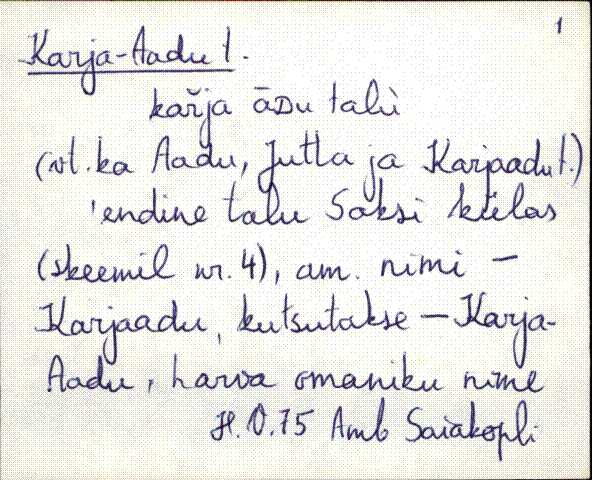 1
Karja-Aadu t.
kařja āᴅu talù
(vt. ka Aadu, Jutta ja Karjaadu t.)
'endine talu Saksi külas
(skeemil nr. 4), am. nimi –
Karjaadu, kutsutakse – Karja-
Aadu, harva omaniku nime
H. V. 75 Amb Saiakopli